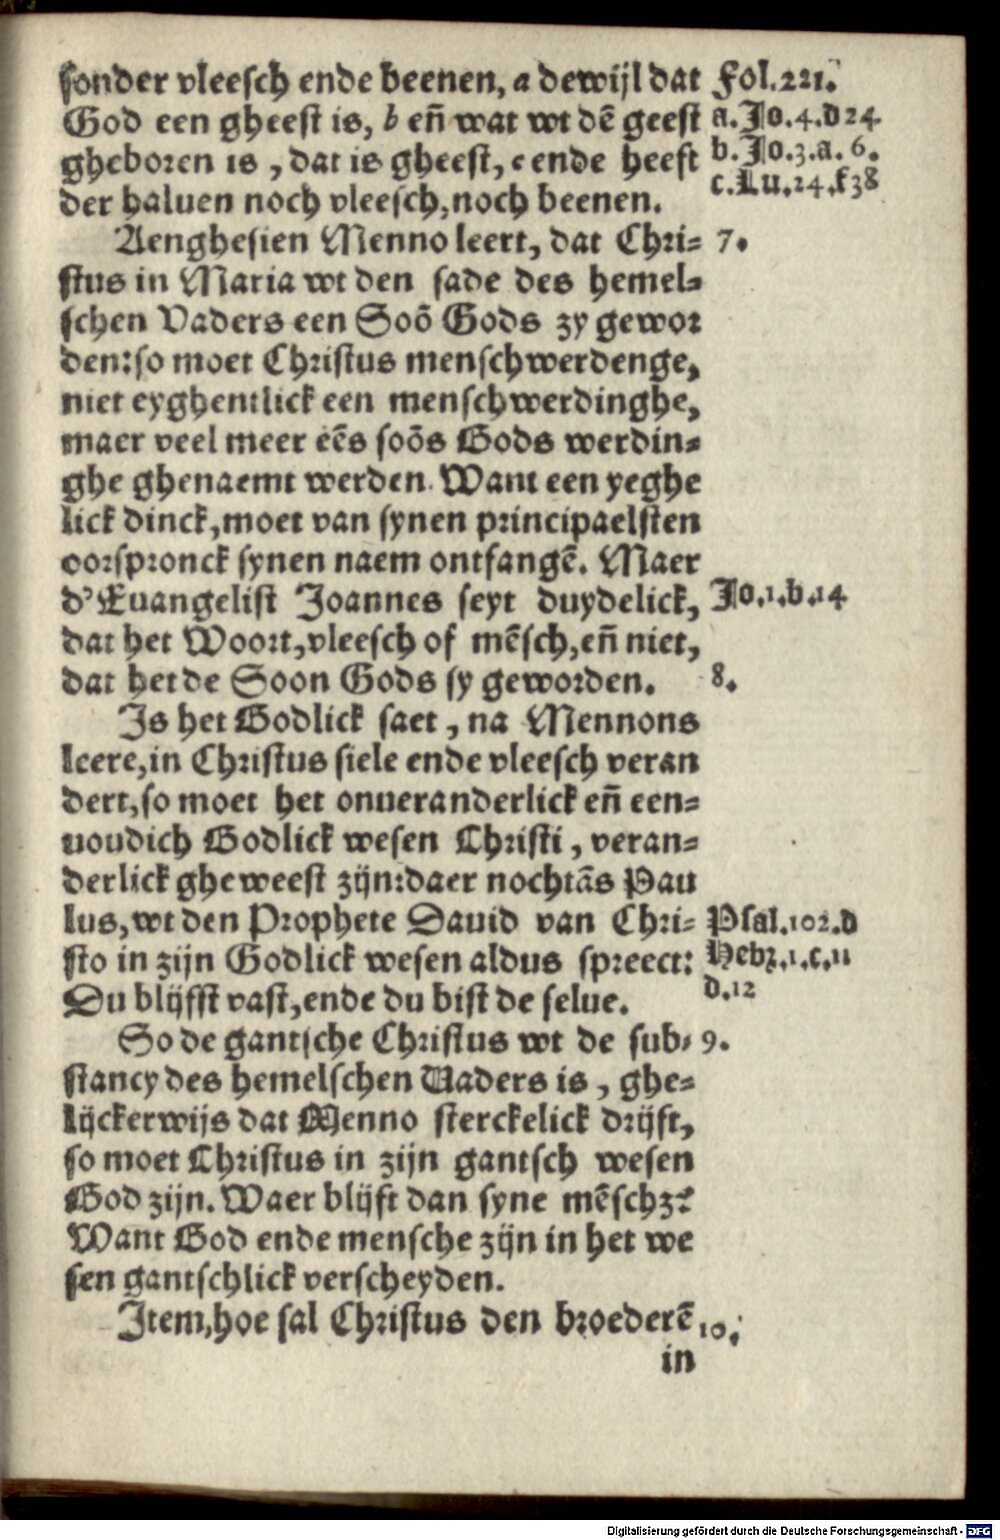 sonder vleesch ende beenen, a dewijl dat Fol.221.
God een gheest is, b eñ wat wt dē geest a.Jo.4.d 24
gheboren is, dat is gheest, c ende heeft b.Jo.3.a.6.
der haluen noch vleesch, noch beenen. c.Lu.24.f38
Aenghesien Menno leert, dat Chri= 7.
stus in Maria wt den sade des hemel=
schen Vaders een Soō Gods zy gewor
den: so moet Christus menschwerdenge,
niet eyghentlick een menschwerdinghe,
maer veel meer eēs soōs Gods werdin=
ghe ghenaemt werden. Want een yeghe
lick dinck, moet van synen principaelsten
oorspronck synen naem ontfangē. Maer
d'Euangelist Joannes seyt duydelick, Jo.1.b.14
dat het Woort, vleesch of mēsch, eñ niet,
dat het de Soon Gods sy geworden. 8.
Is het Godlick saet, na Mennons
leere, in Christus siele ende vleesch veran
dert, so moet het onueranderlick eñ een=
uoudich Godlick wesen Christi, veran=
derlick gheweest zijn: daer nochtās Pau
lus, wt den Prophete Dauid van Chri= Psal.102.d
sto in zijn Godlick wesen aldus spreect: Hebr.1.c.11
Du blijfst vast, ende du bist de selue. d.12
So de gantsche Christus wt de sub= 9.
stancy des hemelschen Vaders is, ghe=
lijckerwijs dat Menno sterckelick drijft,
so moet Christus in zijn gantsch wesen
God zijn. Waer blijft dan syne mēschz?
Want God ende mensche zijn in het we
sen gantschlick verscheyden.
Item, hoe sal Christus den broederē 10.
in
Digitalisierung gefördert durch die Deutsche Forschungsgemeinschaft - DFG